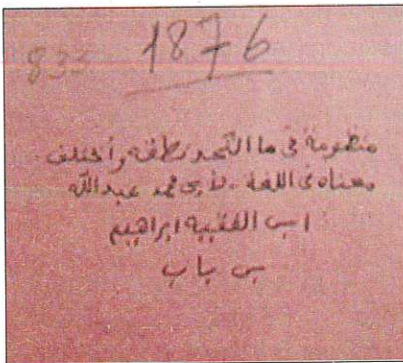 1876
833
منظومة في ما اتحد نطقه وأختلف
معناه في اللغة . لأبي محمد عبد الله
ابن الفقيه ابراهيم
بن باب